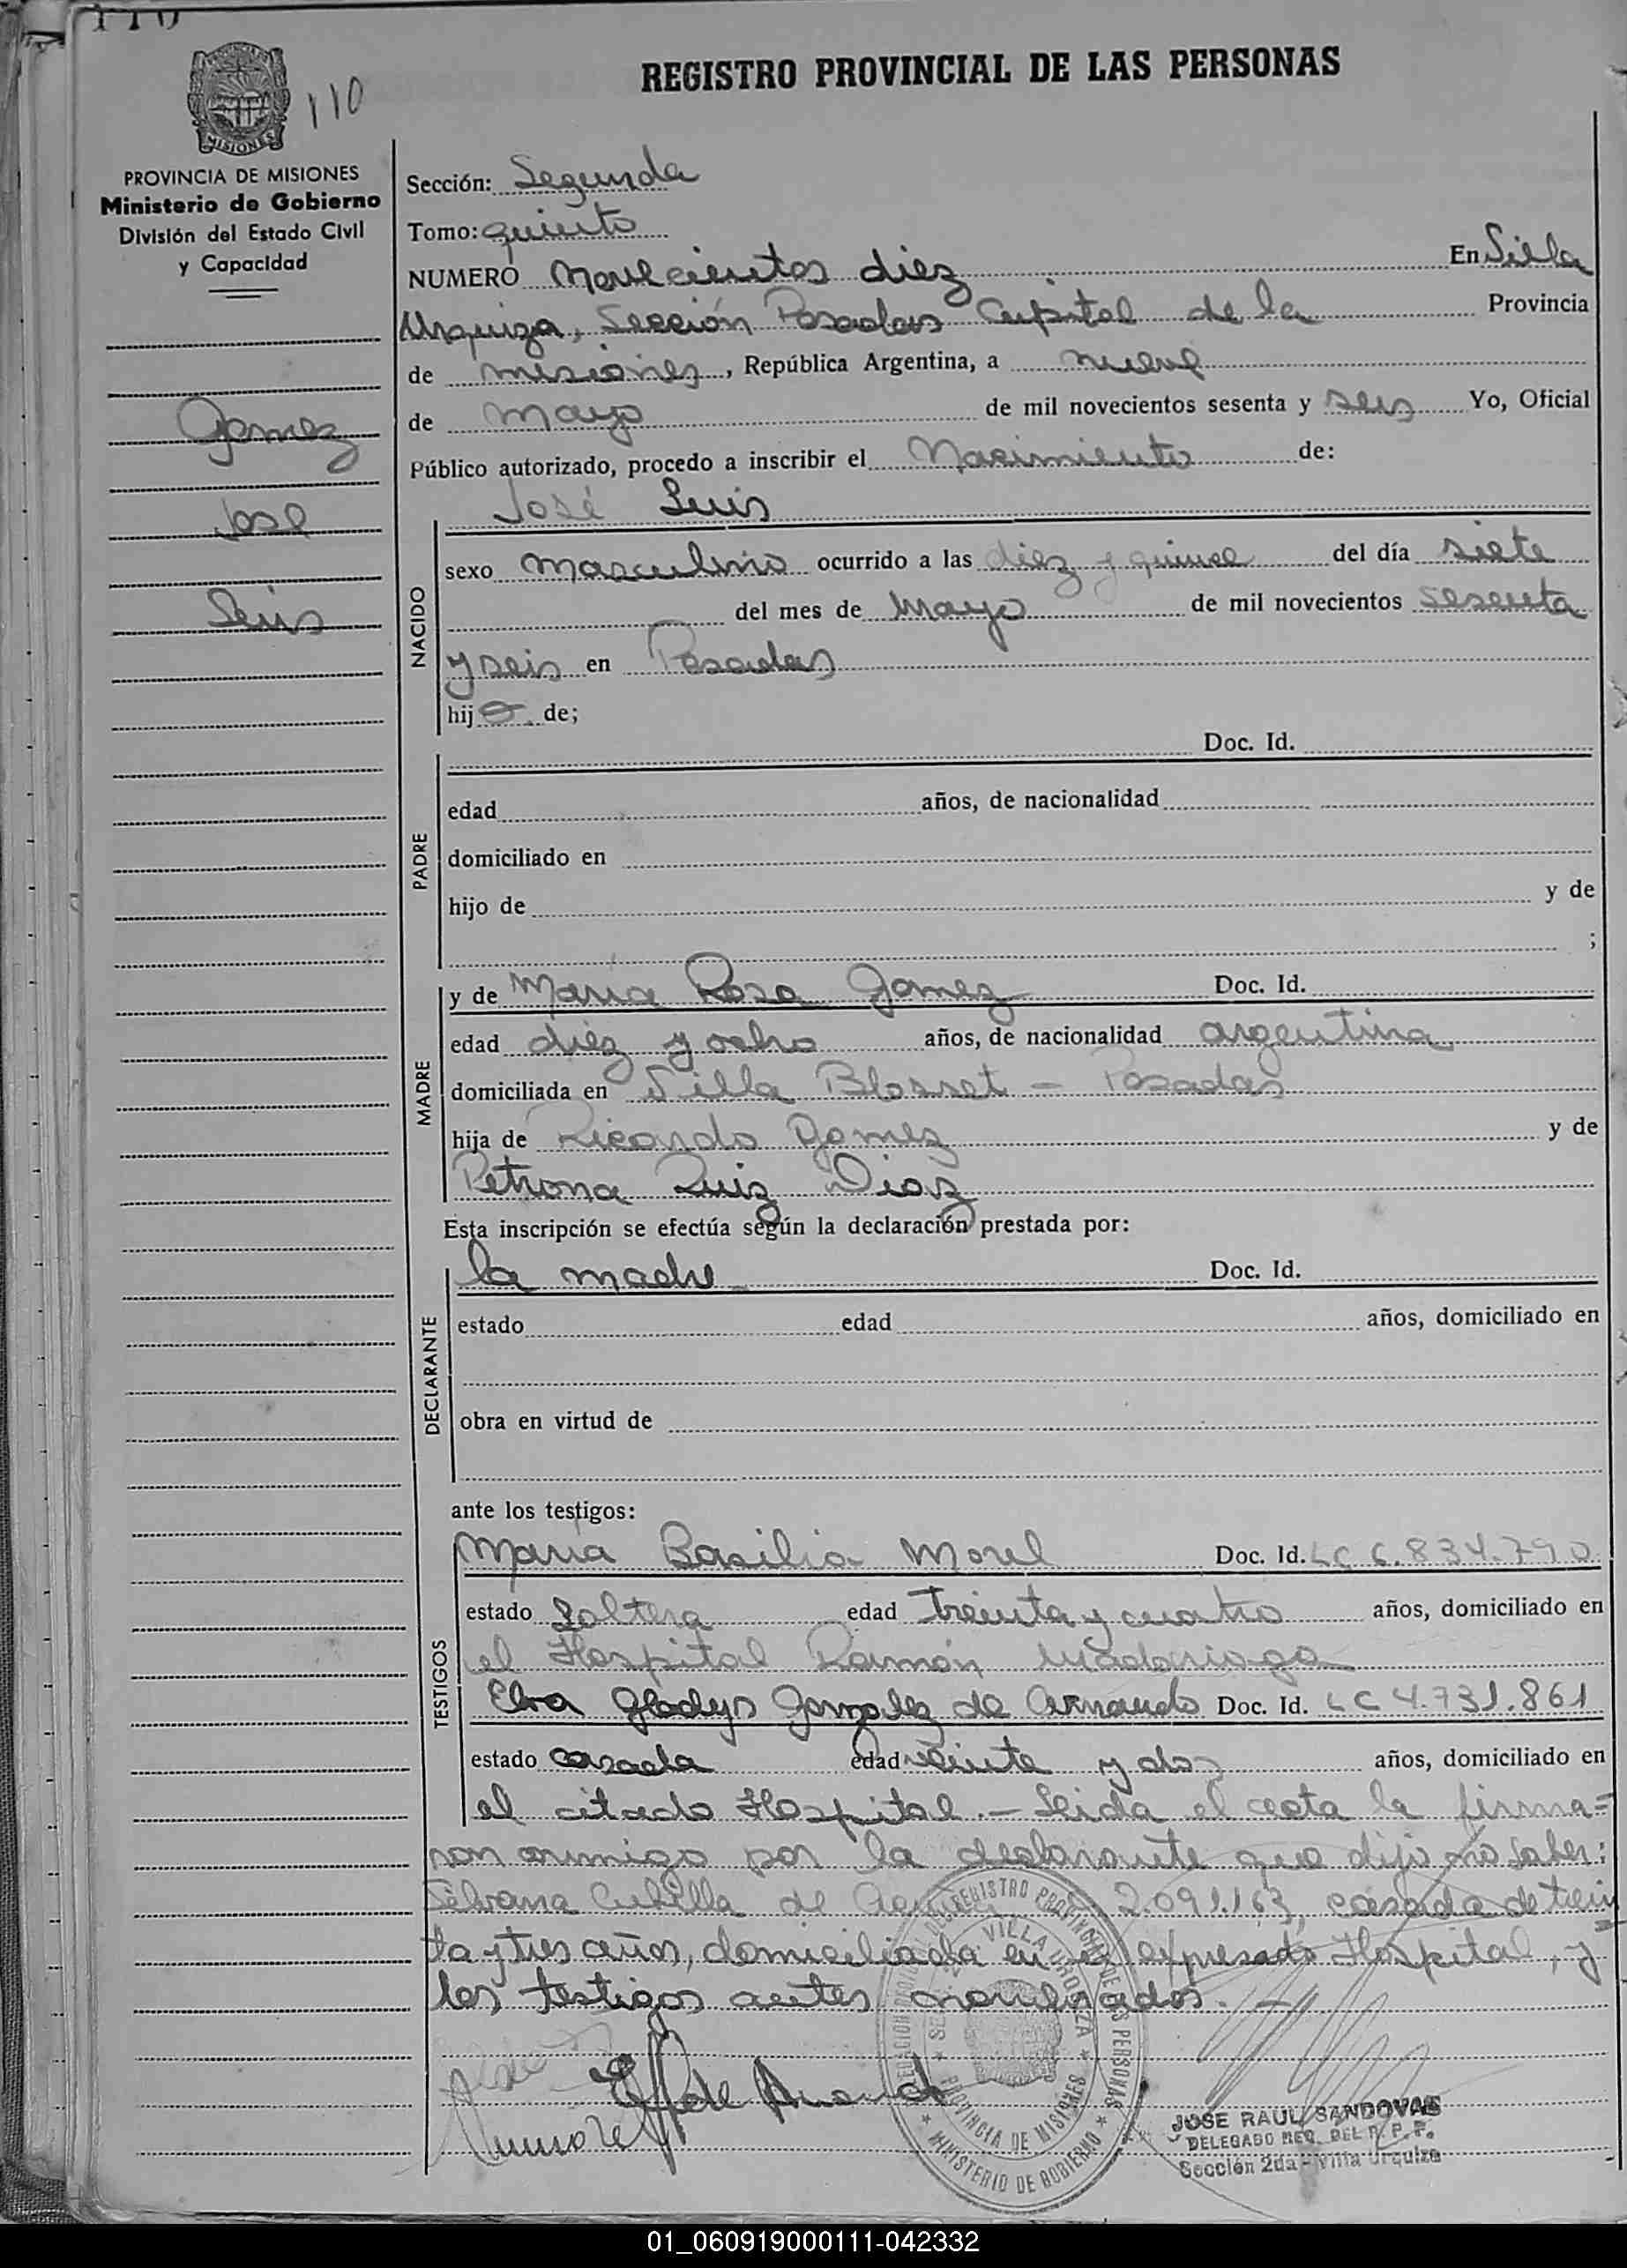 110
REGISTRO PROVINCIAL DE LAS PERSONAS
110
MISIONES
PROVINCIA DE MISIONES
Ministerio de Gobierno
División del Estado Civil
y Capacidad
Gomez
José
Luis
Sección: Segunda
Tomo: quinto
NUMERO Novecientos diez En Villa
Urquiza, Sección Posadas Capital de la Provincia
de misiones, República Argentina, a nueve
de mayo de mil novecientos sesenta y seis Yo, Oficial
Público autorizado, procedo a inscribir el Nacimiento de:
José Luis
NACIDO
sexo masculino ocurrido a las diez y quince del día siete
del mes de Mayo de mil novecientos sesenta
y seis en Posadas
hijo de;
PADRE
Doc. Id.
edad años, de nacionalidad
domiciliado en
hijo de y de
;
MADRE
y de María Rosa Gomez Doc. Id.
edad diez y ocho años, de nacionalidad argentina
domiciliada en Villa Blosset - Posadas
hija de Ricardo Gomez y de
Petrona Ruiz Diaz
Esta inscripción se efectúa según la declaración prestada por:
DECLARANTE
la madre Doc. Id.
estado edad años, domiciliado en
obra en virtud de
ante los testigos:
TESTIGOS
María Basilia Morel Doc. Id. LC 6.834.790
estado Soltera edad treinta y cuatro años, domiciliado en
el Hospital Ramón Madariaga
Elva Gladys Gonzalez de Armando Doc. Id. LC 4.731.861
estado casada edad veinte y dos años, domiciliado en
el citado Hospital.- Leida el acta la firma=
ron conmigo por la declarante que dijo no saber:
Silvana Cubilla de 2.091.163, casada de trein
ta y tres años, domiciliada en el expresado Hospital, y
los testigos antes mencionados. -
REGISTRO PROVINCIAL DE LAS PERSONAS
VILLA URQUIZA
PROVINCIA DE MISIONES
MINISTERIO DE GOBIERNO
JOSE RAUL SANDOVAL
DELEGADO REG. DEL R. P. P.
Sección 2da - Villa Urquiza
01_060919000111-042332